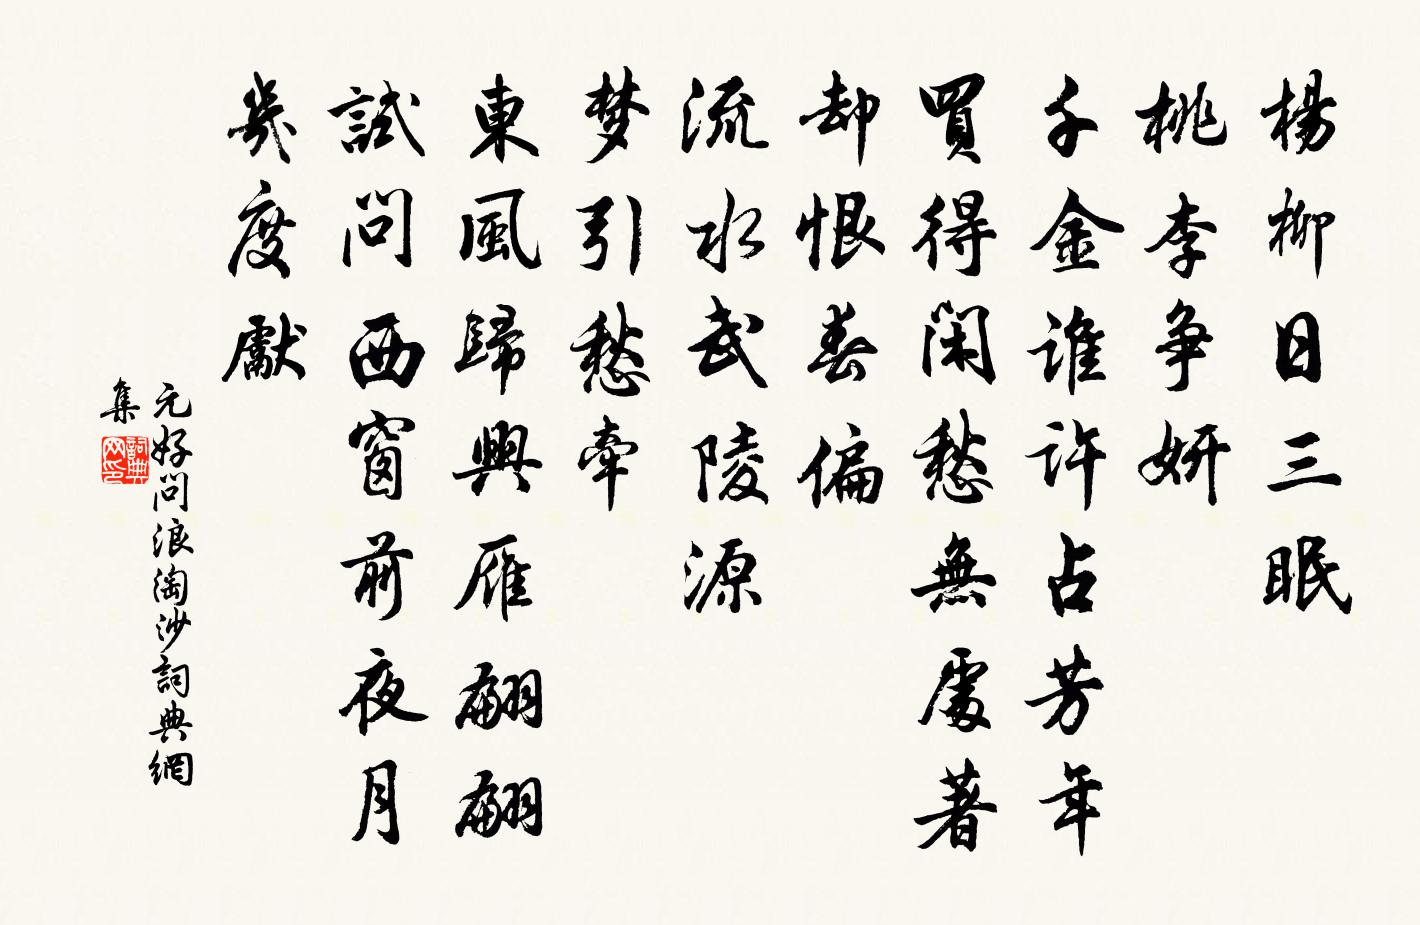 楊柳日三眠
桃李爭妍
千金誰許占芳年
買得閑愁無處著
却恨春偏
流水武陵源
梦引愁牽
東風歸興雁翩翩
試問西窗前夜月
幾度獻
元好問浪淘沙詞典網
集
詞典
网印